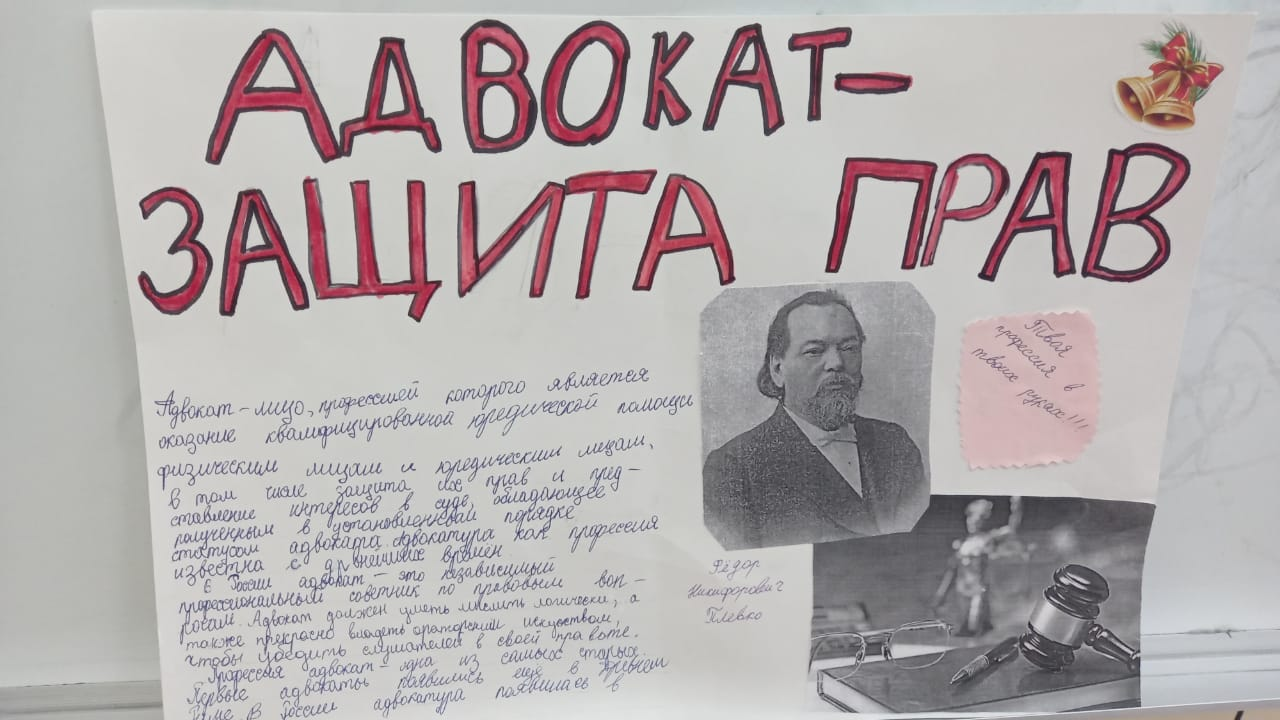 АДВОКАТ-
ЗАЩИТА ПРАВ
Адвокат - лицо, профессией которого является
оказание квалифицированной юредической помощи
физическим лицам и юредическим лицам,
в том числе защита их прав и пред-
ставление интересов в суде, обладающее
полученным в установленном порядке
статусом адвоката. Адвокатура как профессия
известна с древнейших времён
В России адвокат - это независимый
профессиональный советник по правовым воп-
росам. Адвокат должен уметь мыслить логически, а
также прекрасно владеть ораторским искуством,
чтобы убедить слушателей в своей правоте.
Профессия адвокат - одна из самых старых.
Первые адвокаты появились ещё в Древнем
Риме. В России адвокатура появилась в
Фёдор
Никифорович
Плевко
Твоя
профессия в
твоих руках!!!